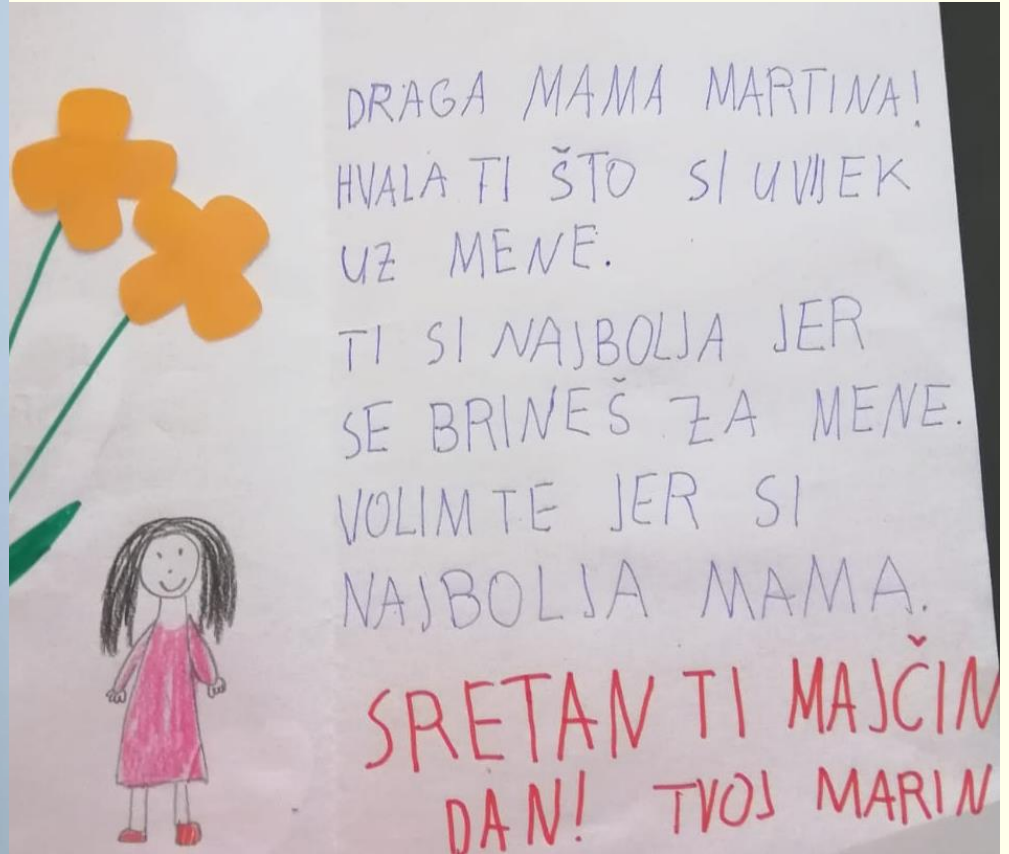 DRAGA MAMA MARTINA!
HVALA TI ŠTO SI UVIJEK
UZ MENE.
TI SI NAJBOLJA JER
SE BRINEŠ ZA MENE.
VOLIM TE JER SI
NAJBOLJA MAMA.
SRETAN TI MAJČIN
DAN! TVOJ MARIN